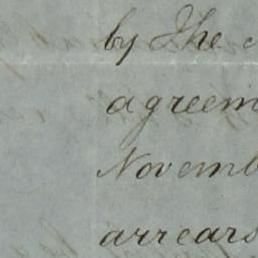 by The c
agreem
Novemb
arrears